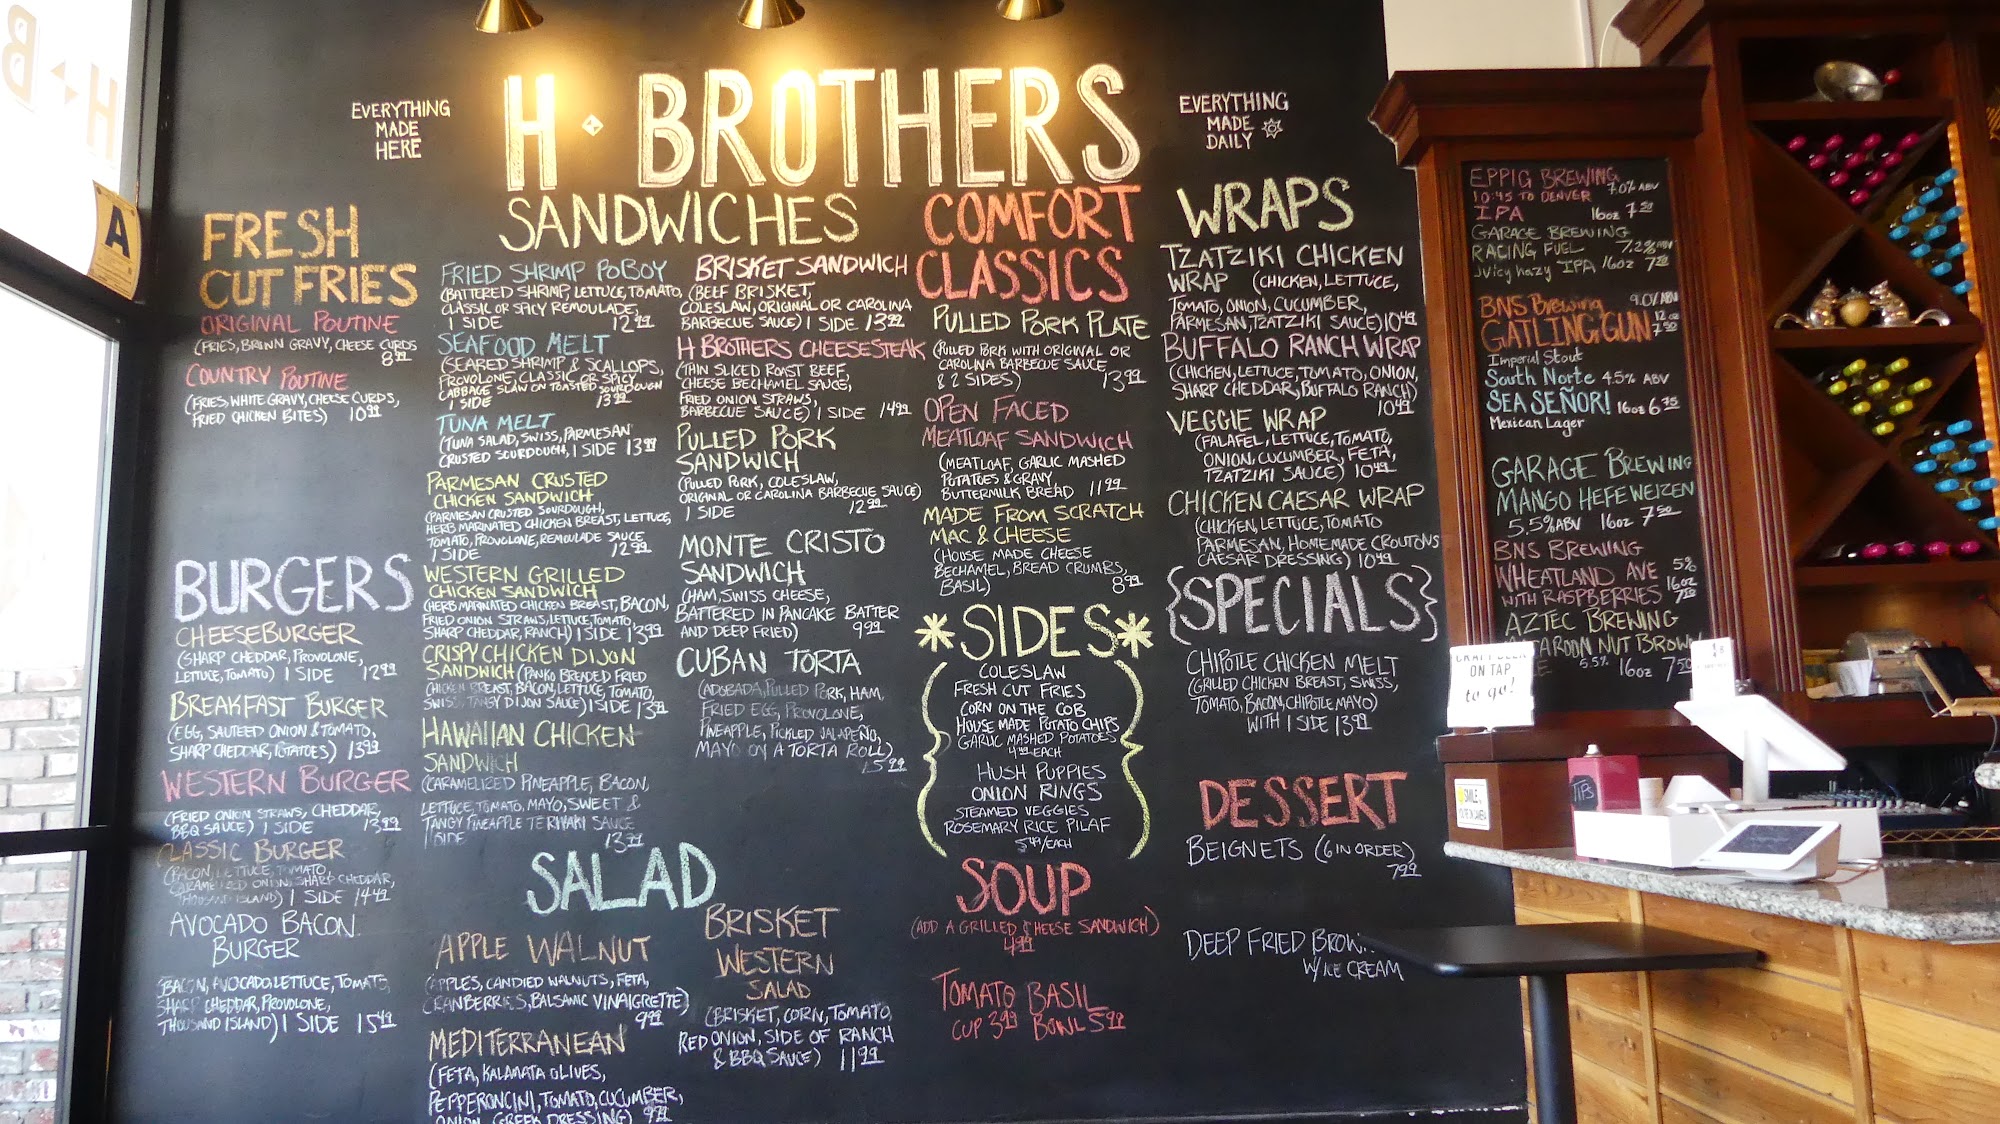 EVERYTHING
MADE
HERE
H BROTHERS
EVERYTHING
MADE
DAILY
A
FRESH
CUT FRIES
ORIGINAL POUTINE
(FRIES, BROWN GRAVY, CHEESE CURDS
8.99
COUNTRY POUTINE
(FRIES, WHITE GRAVY, CHEESE CURDS,
FRIED CHICKEN BITES) 10.99
BURGERS
CHEESEBURGER
(SHARP CHEDDAR, PROVOLONE,
LETTUCE, TOMATO) 1 SIDE 12.99
BREAKFAST BURGER
(EGG, SAUTEED ONION & TOMATO,
SHARP CHEDDAR, POTATOES) 13.99
WESTERN BURGER
(FRIED ONION STRAWS, CHEDDAR,
BBQ SAUCE) 1 SIDE 13.99
CLASSIC BURGER
(BACON, LETTUCE, TOMATO,
CARAMELIZED ONION, SHARP CHEDDAR,
THOUSAND ISLAND) 1 SIDE 14.49
AVOCADO BACON
BURGER
(BACON, AVOCADO, LETTUCE, TOMATO,
SHARP CHEDDAR, PROVOLONE,
THOUSAND ISLAND) 1 SIDE 15.49
SANDWICHES
FRIED SHRIMP POBOY
(BATTERED SHRIMP, LETTUCE, TOMATO,
CLASSIC OR SPICY REMOULADE,
1 SIDE 12.99
SEAFOOD MELT
(SEARED SHRIMP & SCALLOPS,
PROVOLONE, CLASSIC OR SPICY
CABBAGE SLAW ON TOASTED SOURDOUGH
1 SIDE 13.99
TUNA MELT
(TUNA SALAD, SWISS, PARMESAN
CRUSTED SOURDOUGH, 1 SIDE 13.99
PARMESAN CRUSTED
CHICKEN SANDWICH
(PARMESAN CRUSTED SOURDOUGH,
HERB MARINATED CHICKEN BREAST, LETTUCE,
TOMATO, PROVOLONE, REMOULADE SAUCE
1 SIDE 12.99
WESTERN GRILLED
CHICKEN SANDWICH
(HERB MARINATED CHICKEN BREAST, BACON,
FRIED ONION STRAWS, LETTUCE, TOMATO,
SHARP CHEDDAR, RANCH) 1 SIDE 13.99
CRISPY CHICKEN DIJON
SANDWICH (PANKO BREADED FRIED
CHICKEN BREAST, BACON, LETTUCE, TOMATO,
SWISS, TANGY DIJON SAUCE) 1 SIDE 13.99
HAWAIIAN CHICKEN
SANDWICH
(CARAMELIZED PINEAPPLE, BACON,
LETTUCE, TOMATO, MAYO, SWEET &
TANGY PINEAPPLE TERIYAKI SAUCE
1 SIDE 13.99
BRISKET SANDWICH
(BEEF BRISKET,
COLESLAW, ORIGINAL OR CAROLINA
BARBECUE SAUCE) 1 SIDE 13.99
H BROTHERS CHEESESTEAK
(THIN SLICED ROAST BEEF,
CHEESE BECHAMEL SAUCE,
FRIED ONION STRAWS,
BARBECUE SAUCE) 1 SIDE 14.99
PULLED PORK
SANDWICH
(PULLED PORK, COLESLAW,
ORIGINAL OR CAROLINA BARBECUE SAUCE)
1 SIDE 12.99
MONTE CRISTO
SANDWICH
(HAM, SWISS CHEESE,
BATTERED IN PANCAKE BATTER
AND DEEP FRIED) 9.99
CUBAN TORTA
(ADOBADA, PULLED PORK, HAM,
FRIED EGG, PROVOLONE,
PINEAPPLE, PICKLED JALAPEÑO,
MAYO ON A TORTA ROLL)
15.99
SALAD
APPLE WALNUT
(APPLES, CANDIED WALNUTS, FETA,
CRANBERRIES, BALSAMIC VINAIGRETTE)
9.99
MEDITERRANEAN
(FETA, KALAMATA OLIVES,
PEPPERONCINI, TOMATO, CUCUMBER,
ONION, GREEK DRESSING) 9.99
BRISKET
WESTERN
SALAD
(BRISKET, CORN, TOMATO,
RED ONION, SIDE OF RANCH
& BBQ SAUCE) 11.99
COMFORT
CLASSICS
PULLED PORK PLATE
(PULLED PORK WITH ORIGINAL OR
CAROLINA BARBECUE SAUCE
& 2 SIDES) 13.99
OPEN FACED
MEATLOAF SANDWICH
(MEATLOAF, GARLIC MASHED
POTATOES & GRAVY,
BUTTERMILK BREAD 11.99
MADE FROM SCRATCH
MAC & CHEESE
(HOUSE MADE CHEESE
BECHAMEL, BREAD CRUMBS,
BASIL) 8.99
*SIDES*
COLESLAW
FRESH CUT FRIES
CORN ON THE COB
HOUSE MADE POTATO CHIPS
GARLIC MASHED POTATOES
4.49 EACH
HUSH PUPPIES
ONION RINGS
STEAMED VEGGIES
ROSEMARY RICE PILAF
5.49/EACH
SOUP
(ADD A GRILLED CHEESE SANDWICH)
4.99
TOMATO BASIL
CUP 3.99 BOWL 5.99
WRAPS
TZATZIKI CHICKEN
WRAP (CHICKEN, LETTUCE,
TOMATO, ONION, CUCUMBER,
PARMESAN, TZATZIKI SAUCE) 10.49
BUFFALO RANCH WRAP
(CHICKEN, LETTUCE, TOMATO, ONION,
SHARP CHEDDAR, BUFFALO RANCH)
10.49
VEGGIE WRAP
(FALAFEL, LETTUCE, TOMATO,
ONION, CUCUMBER, FETA,
TZATZIKI SAUCE) 10.49
CHICKEN CAESAR WRAP
(CHICKEN, LETTUCE, TOMATO
PARMESAN, HOMEMADE CROUTONS
CAESAR DRESSING) 10.49
{SPECIALS}
CHIPOTLE CHICKEN MELT
(GRILLED CHICKEN BREAST, SWISS,
TOMATO, BACON, CHIPOTLE MAYO)
WITH 1 SIDE 13.99
DESSERT
BEIGNETS (6 IN ORDER)
7.99
DEEP FRIED BROW
W/ICE CREAM
EPPIG BREWING
10:45 TO DENVER 7.0% ABV
IPA 16oz 7.50
GARAGE BREWING
RACING FUEL 7.2% ABV
Juicy hazy IPA 16oz 7.50
BNS BREWING 9.0% ABV
GATLING GUN 12oz 7.50
Imperial Stout
South Norte 4.5% ABV
SEA SEÑOR! 16oz 6.75
Mexican Lager
GARAGE BREWING
MANGO HEFEWEIZEN
5.5% ABV 16oz 7.50
BNS BREWING
WHEATLAND AVE 5%
WITH RASPBERRIES 16oz 7.50
AZTEC BREWING
NUT BROWN
5.5% 16oz 7.50
ON TAP
to go!
TIPS
SMILE